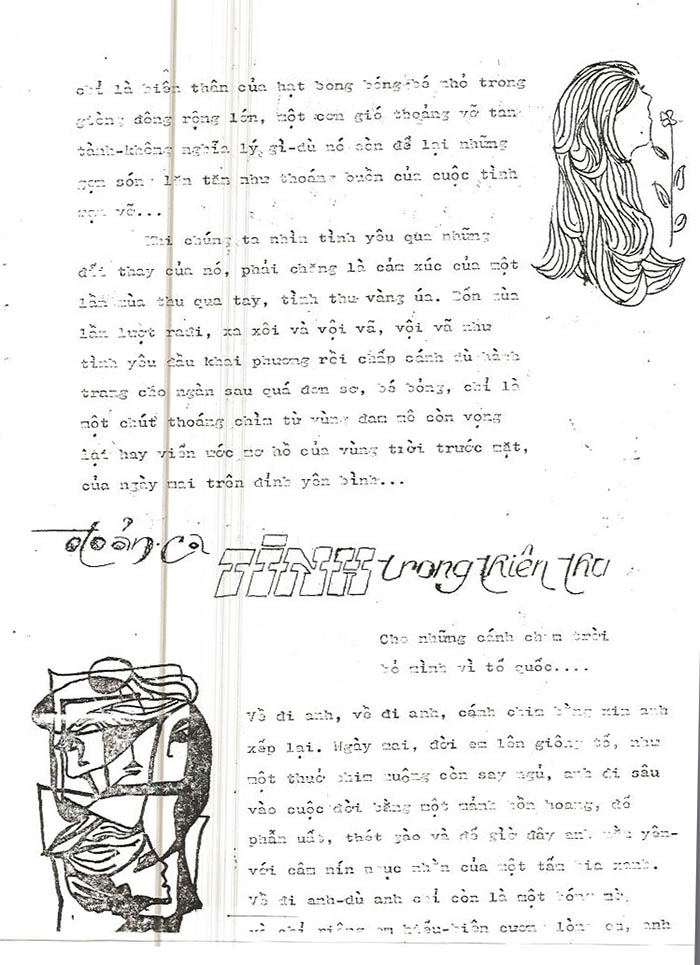 chỉ là biến thân của hạt bong bóng-bé nhỏ trong
giòng đông rộng lớn, một cơn gió thoảng vỡ tan
tành-không nghĩa lý gì-dù nó còn để lại những
gợn sóng lăn tăn như thoáng buồn của cuộc tình
vỡ...
Khi chúng ta nhìn tình yêu qua những
đổi thay của nó, phải chăng là cảm xúc của một
lần mùa thu qua tay, tình thư vàng úa. Bốn mùa
lần lượt rađi, xa xôi và vội vã, vội vã như
tình yêu đầu khai phương rồi chấp cánh dù hành
trang cho ngàn sau quá đơn sơ, bé bỏng, chỉ là
một chút thoáng chìm từ vùng đam mê còn vọng
lại hay viễn ước mơ hồ của vùng trời trước mặt,
của ngày mai trên đỉnh yên bình...
đoản ca TÌNH trong thiên thu
Cho những cánh chim trời
bỏ mình vì tổ quốc....
Về đi anh, về đi anh, cánh chim bằng xin anh
xếp lại. Ngày mai, đời em lên giông tố, như
một thuở chim muông còn say ngủ, anh đi sâu
vào cuộc đời bằng một mảnh hồn hoang, để
phẫn uất, thét gào và để giờ đây anh nằm yên-
với câm nín nhìn của một tấm bia xanh.
Về đi anh-dù anh chỉ còn là một bóng mờ,
và chỉ riêng em hiểu-biên cương lòng em, anh